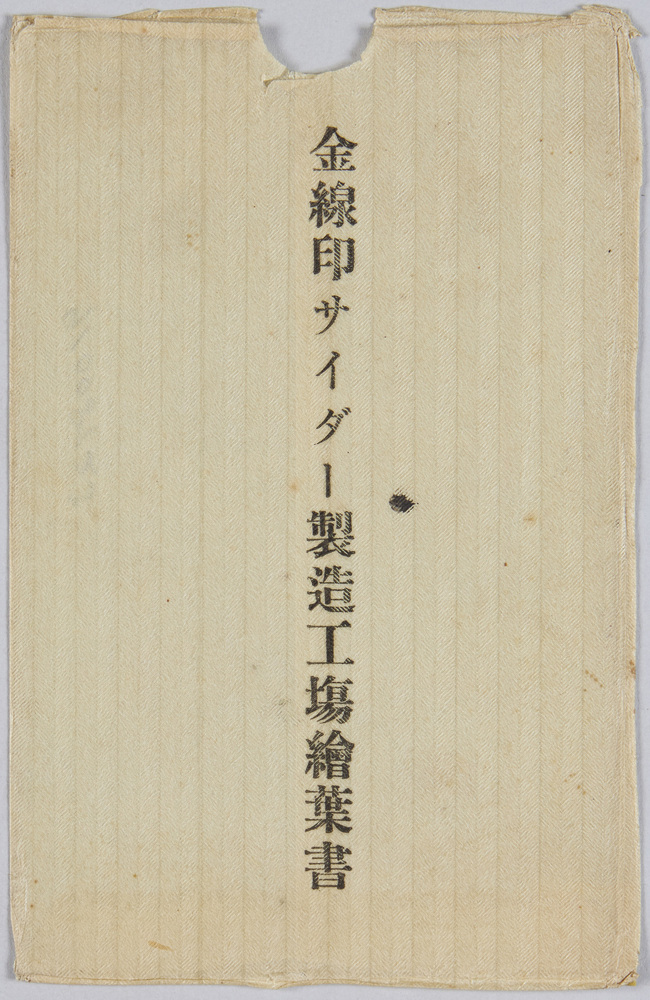 金線印サイダー製造工塲繪葉書